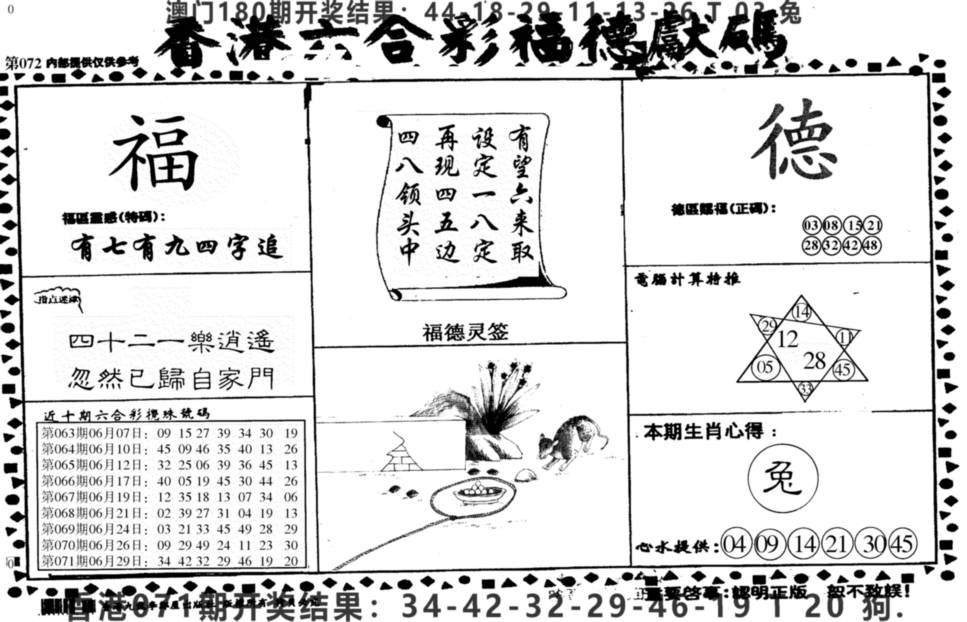 0
澳门180期开奖结果: 44-18-29-11-13-26 T 03 兔
香港六合彩福德獻碼
第072 内部提供仅供参考
福
福區靈感(特碼):
有七有九四字追
指点迷津
四十二一樂逍遙
忽然已歸自家門
近十期六合彩攪珠號碼
第063期06月07日: 09 15 27 39 34 30 19
第064期06月10日: 45 09 46 35 40 13 26
第065期06月12日: 32 25 06 39 36 45 13
第066期06月17日: 40 05 19 45 30 44 26
第067期06月19日: 12 35 18 13 07 34 06
第068期06月21日: 02 39 27 31 04 19 13
第069期06月24日: 03 21 33 45 49 28 29
第070期06月26日: 09 29 49 24 11 23 30
第071期06月29日: 34 42 32 29 46 19 20
有望六来取
设定一八定
再现四五边
四八领头中
福德灵签
德
德區賜福(正碼):
03 08 15 21
28 32 42 48
電腦計算特推
14
29
11
12
28
05
45
33
本期生肖心得:
兔
心水提供: 04 09 14 21 30 45
0
重要啓事:認明正版 恕不致誤!
香港071期开奖结果: 34-42-32-29-46-19 T 20 狗.